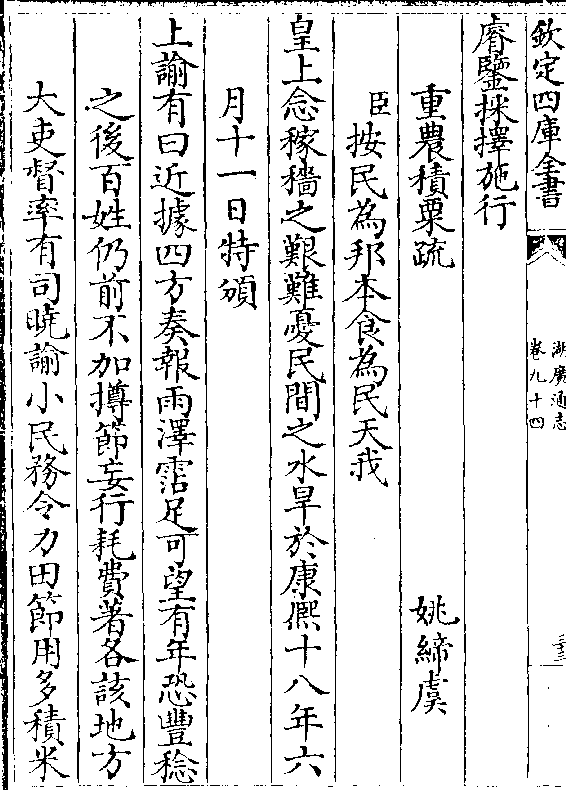 欽定四庫全書
湖廣通志
卷九十四
三三
睿鑒採擇施行
重農積粟疏 姚締虞
臣按民為邦本食為民天我
皇上念稼穡之艱難憂民間之水旱於康熈十八年六
月十一日特頒
上諭有曰近據四方奏報雨澤霑足可望有年恐豐稔
之後百姓仍前不加撙節妄行耗費著各該地方
大吏督率有司曉諭小民務令力田節用多積米